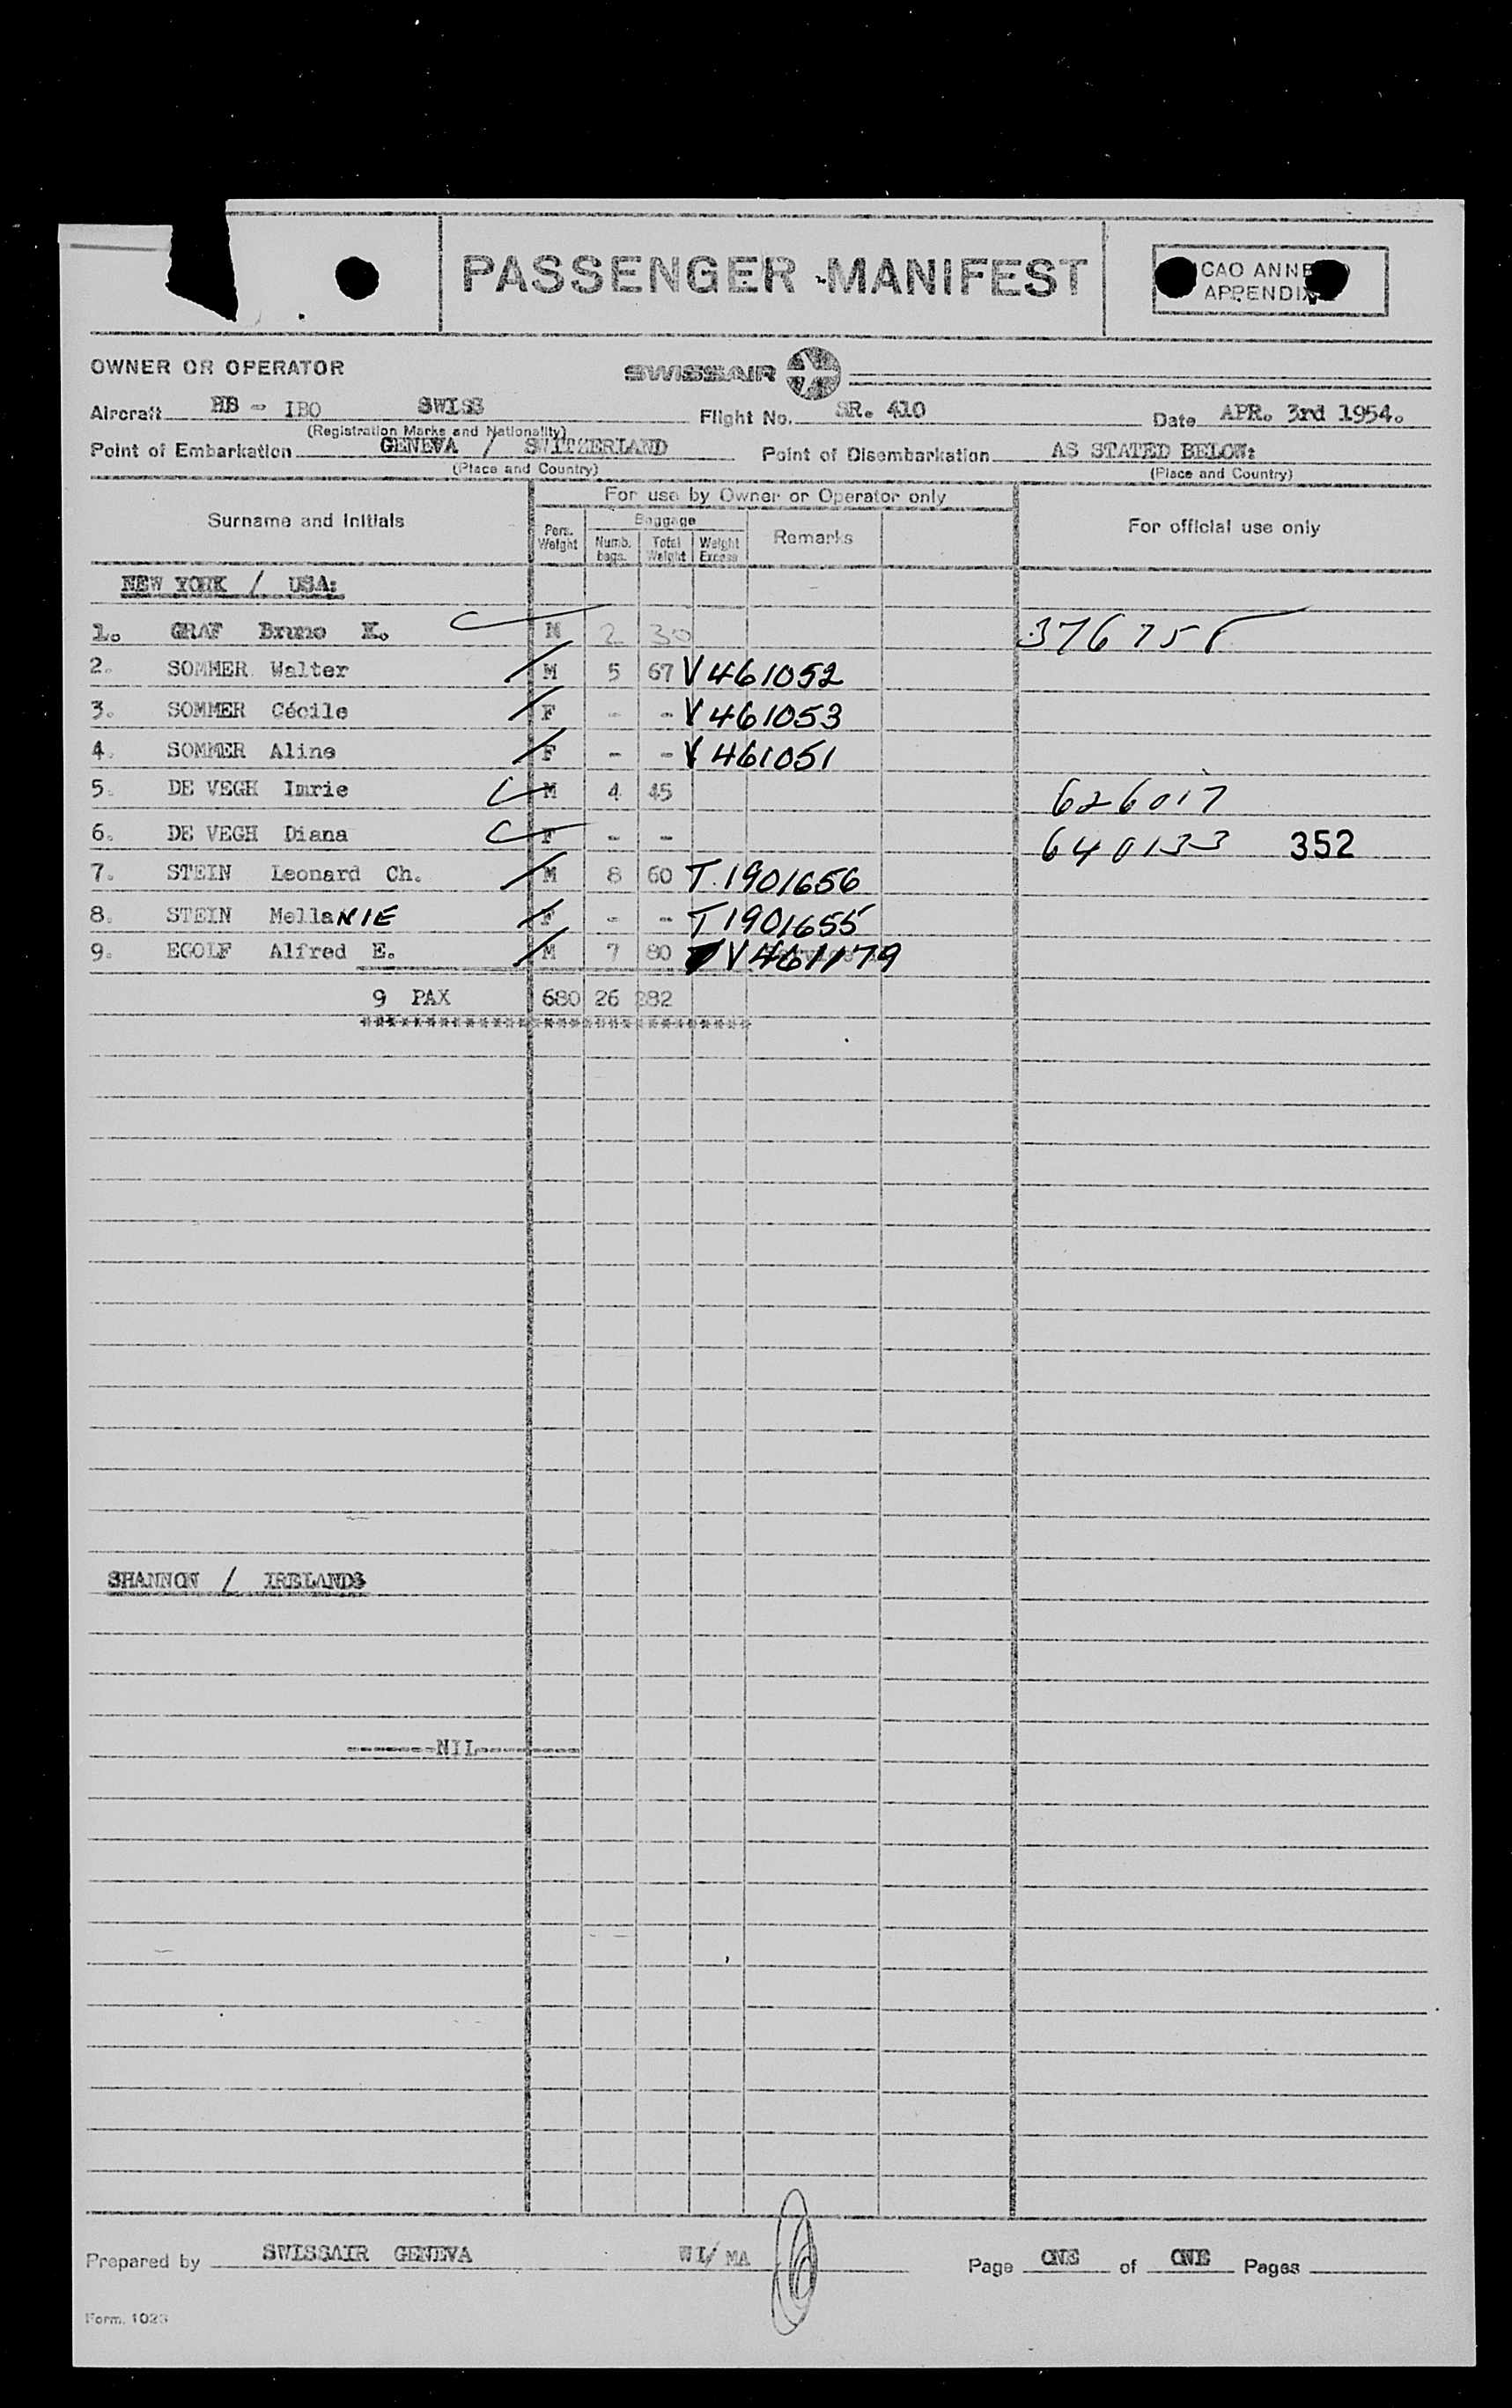 PASSENGER MANIFEST
CAO ANNE
APPENDIX
OWNER OR OPERATOR SWISSAIR
Aircraft HB - IBO SWISS Flight No. SR. 410 Date APR. 3rd 1954.
(Registration Marks and Nationality)
Point of Embarkation GENEVA / SWITZERLAND Point of Disembarkation AS STATED BELOW:
(Place and Country) (Place and Country)
For use by Owner or Operator only
Surname and Initials Pers. Weight Baggage Numb. bags. Total Weight Weight Excess Remarks For official use only
NEW YORK / USA:
1. GRAF Bruno K. M 2 30 376758
2. SOMMER Walter M 5 67 V461052
3. SOMMER Cécile F - - V461053
4. SOMMER Aline F - - V461051
5. DE VEGH Imrie M 4 45 626017
6. DE VEGH Diana F - - 640133 352
7. STEIN Leonard Ch. M 8 60 T.1901656
8. STEIN MellaNIE F - - T1901655
9. EGOLF Alfred E. M 7 80 V461179
9 PAX 680 26 282
SHANNON / IRELAND:
-------NIL---------
Prepared by SWISSAIR GENEVA WI/MA Page ONE of ONE Pages
Form. 1023